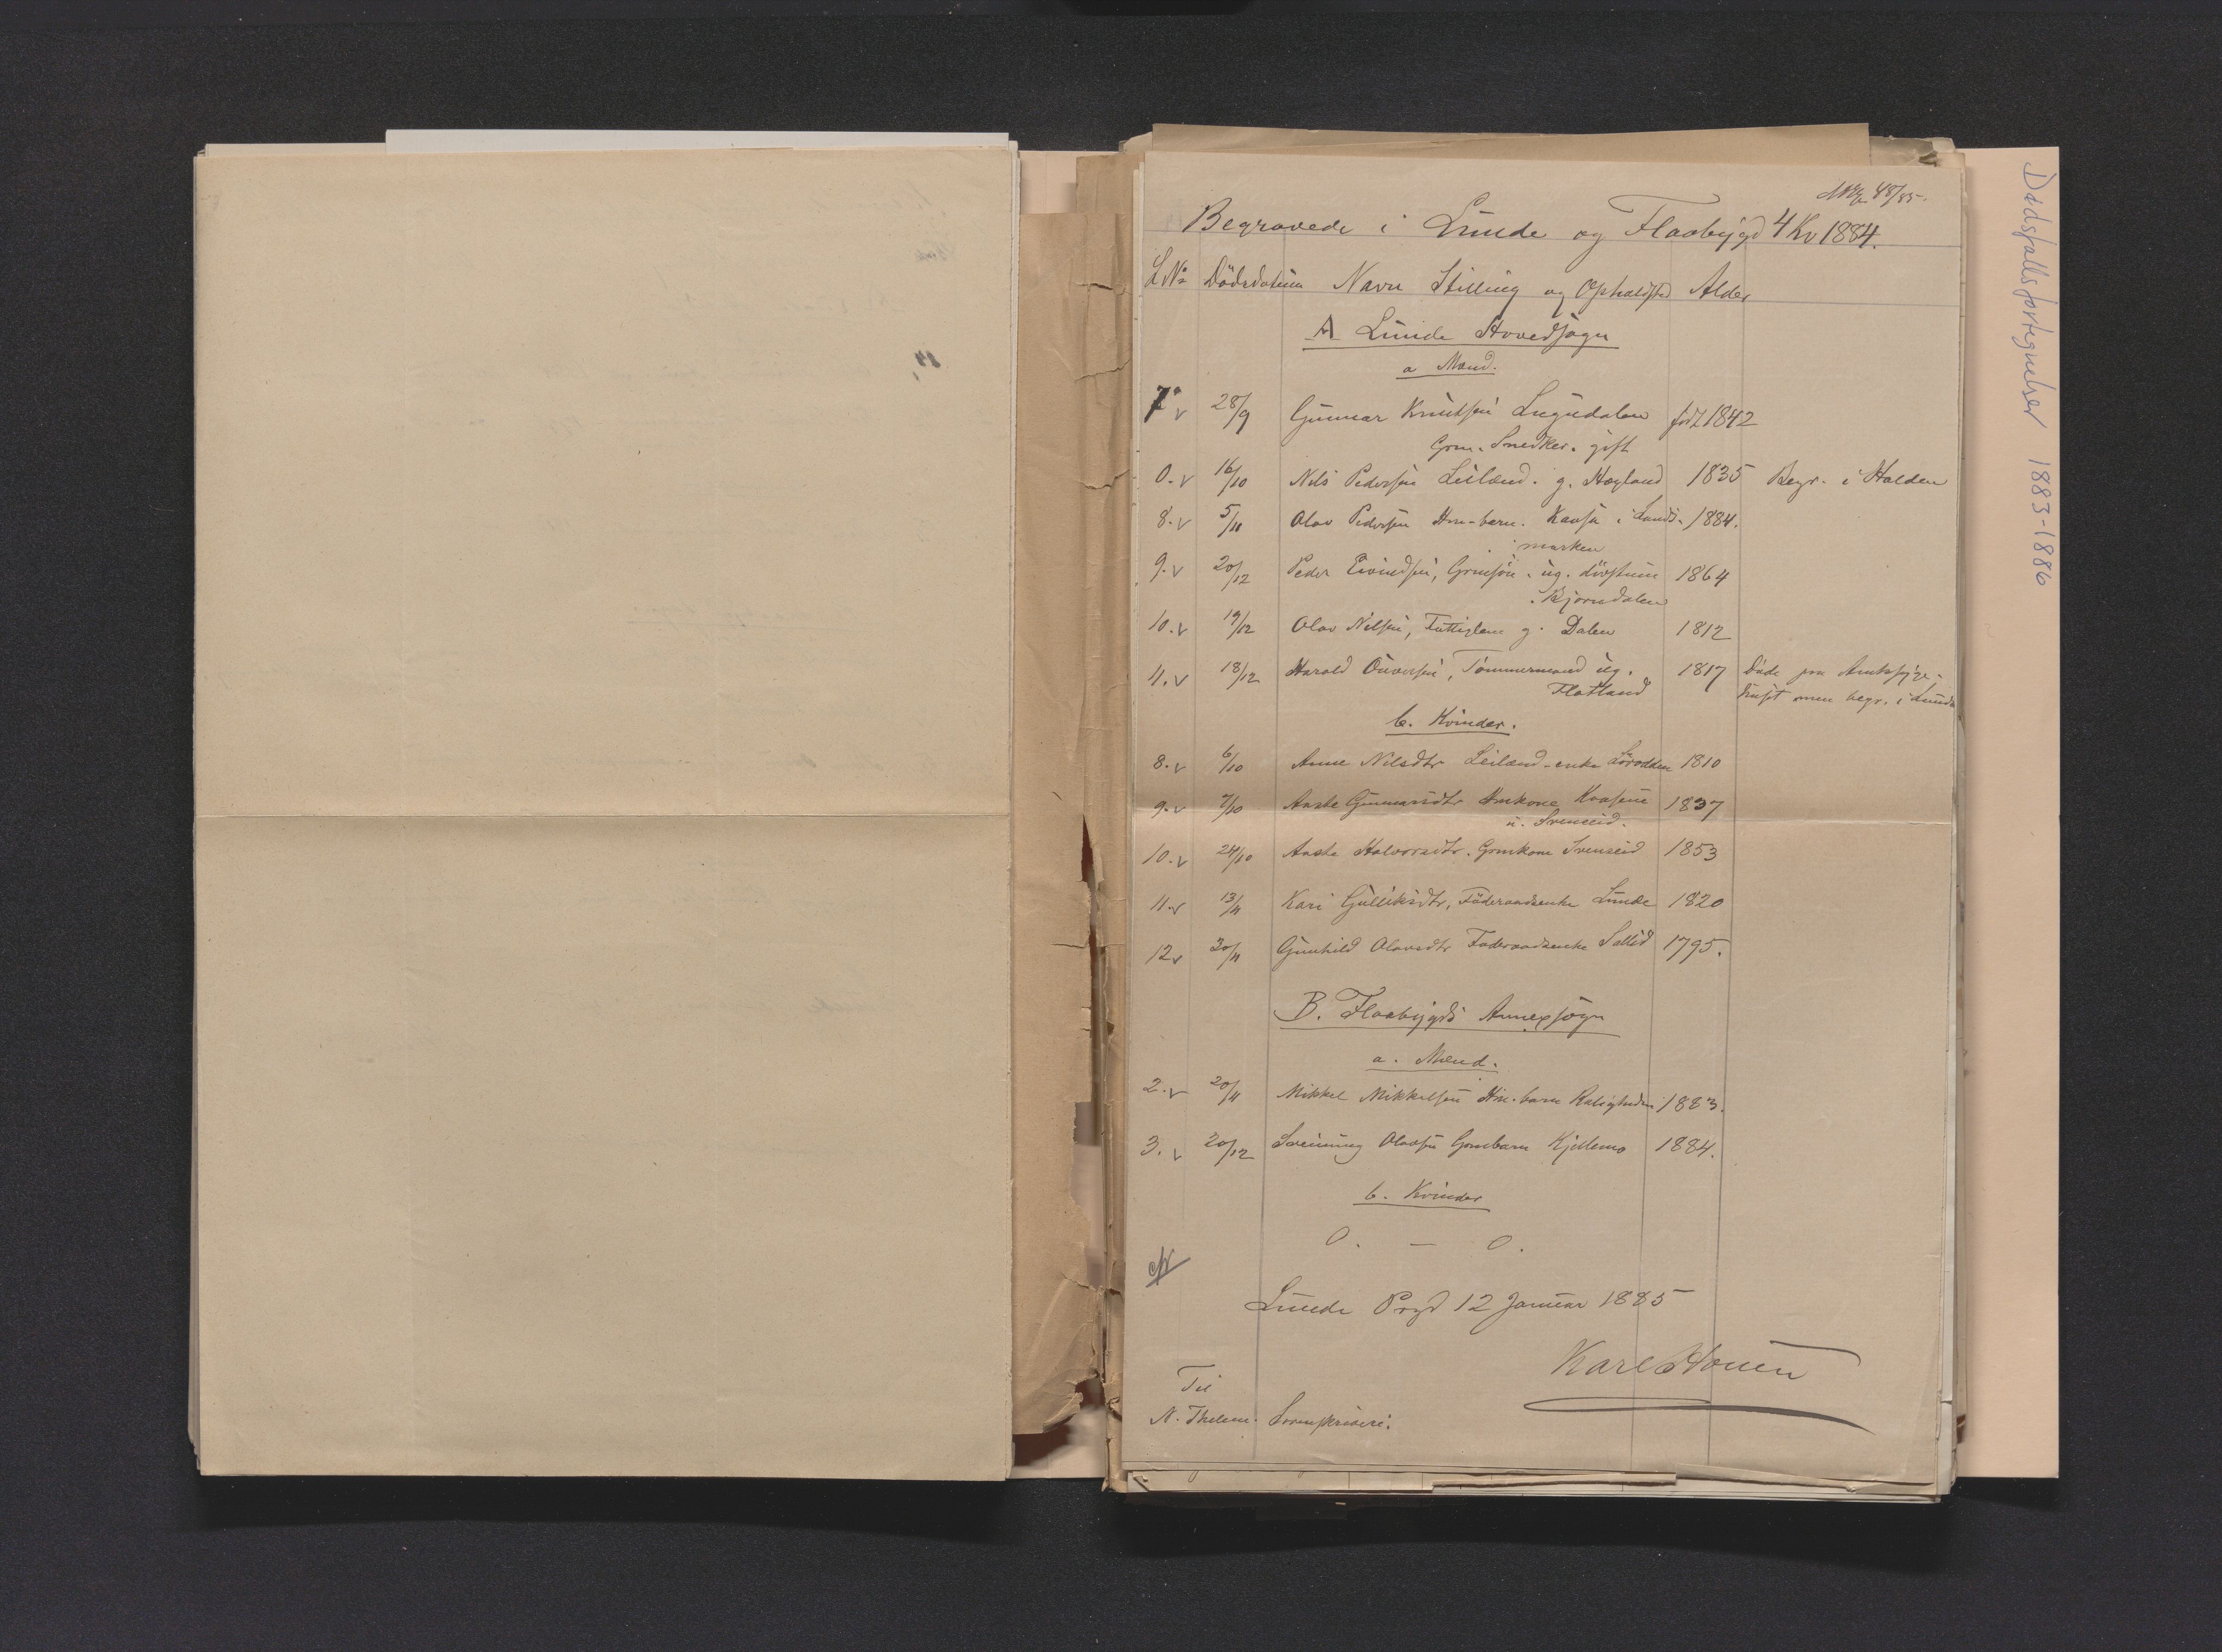 48/85.
Begravede i Lunde og Flaabygd 4 Kv 1884.
L No Dödsdatum Navn Stilling og Opholdsted Alder
A Lunde Hovedsogn
a Mænd.
7 v 28/9 Gunnar Knutsen Lugudalen født 1842
Grm. Snedker. gift
0. v 16/10 Nils Pedersen Leilænd. g. Høgland 1835 Begr. i Holden
8. v 5/11 Olav Pedersen Hm-barn. Kaasa i Lunds- 1884.
marken
9. v 20/12 Peder Eivindsen, Grmsön. ug. døvstum 1864
Bjorndalen
10. v 19/12 Olav Nilsen, Fattiglem g. Dalen 1812
11. v 18/12 Harald Ouversen, Tömmermand ug. 1817 Døde paa Amtssyge-
Flatland huset men begr. i Lunde
b. Kvinder.
8. v 6/10 Anne Nilsdtr Leilænd-enke Lörodden 1810
9. v 7/10 Aaste Gunnarsdtr Hmkone Kaasene 1837
u. Svenseid.
10. v 24/10 Aaste Halvorsdtr. Grmkone Svenseid 1853
11. v 13/11 Kari Gulliksdtr. Föderaadsenke Lunde 1820
12 v 30/11 Gunhild Olavsdtr Foderaadsenke Sallid 1795.
B. Flaabygds Annexsogn
a. Mænd.
2. v 20/11 Mikkel Mikkelsen Hm. barn Roligheden 1883.
3. v 20/12 Sveinung Olavsen Grmbarn Kjellemo 1884.
b. Kvinder
0. — 0.
Lunde Prgd 12 Januar 1885
Karl Houen
Til
N. Thelem. Sorenskriveri.
Dødsfallsfortegnelser 1883-1886